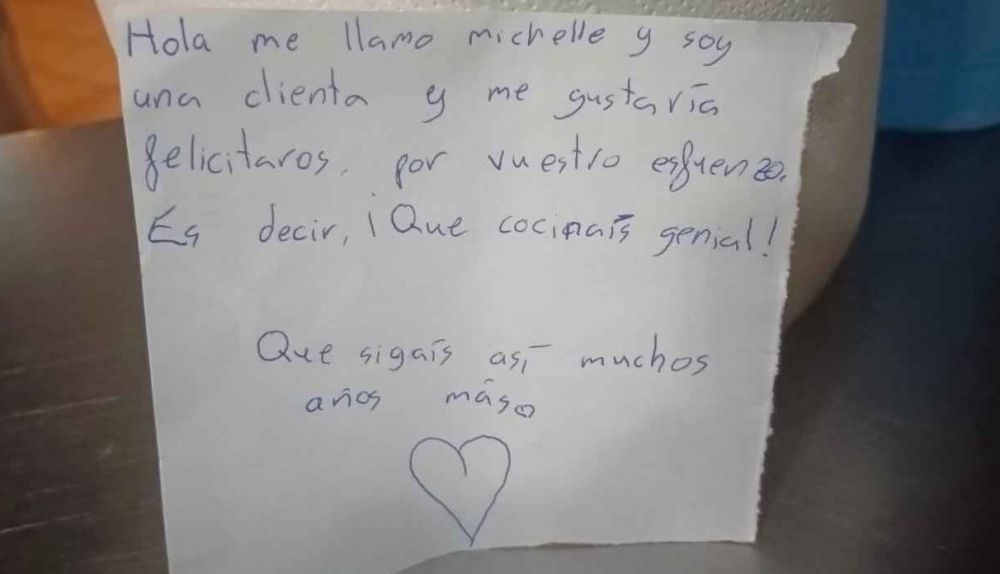 Hola me llamo michelle y soy
una clienta y me gustaría
felicitaros, por vuestro esfuenzo.
Es decir, ¡Que cocináis genial!
Que sigáis así muchos
años más.